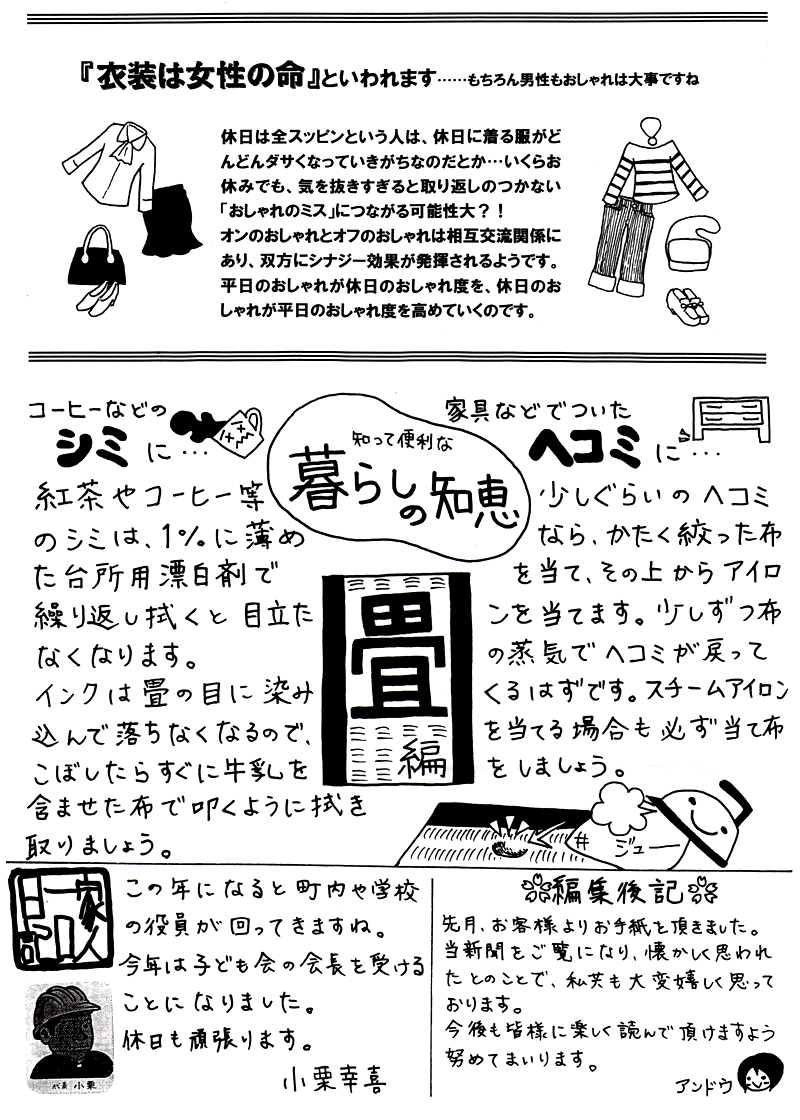 『衣装は女性の命』といわれます……もちろん男性もおしゃれは大事ですね
休日は全スッピンという人は、休日に着る服がど
んどんダサくなっていきがちなのだとか…いくらお
休みでも、気を抜きすぎると取り返しのつかない
「おしゃれのミス」につながる可能性大？！
オンのおしゃれとオフのおしゃれは相互交流関係に
あり、双方にシナジー効果が発揮されるようです。
平日のおしゃれが休日のおしゃれ度を、休日のお
しゃれが平日のおしゃれ度を高めていくのです。
知って便利な
暮らしの知恵
畳
編
コーヒーなどの
シミに…
紅茶やコーヒー等
のシミは、1%に薄め
た台所用漂白剤で
繰り返し拭くと目立た
なくなります。
インクは畳の目に染み
込んで落ちなくなるので、
こぼしたらすぐに牛乳を
含ませた布で叩くように拭き
取りましょう。
家具などでついた
ヘコミに…
少しぐらいのヘコミ
なら、かたく絞った布
を当て、その上からアイロ
ンを当てます。少しずつ布
の蒸気でヘコミが戻って
くるはずです。スチームアイロン
を当てる場合も必ず当て布
をしましょう。
ジュー
家人
一口
日記
この年になると町内や学校
の役員が回ってきますね。
今年は子ども会の会長を受ける
ことになりました。
休日も頑張ります。
小栗幸喜
代表 小栗
編集後記
先月、お客様よりお手紙を頂きました。
当新聞をご覧になり、懐かしく思われ
たとのことで、私共も大変嬉しく思って
おります。
今後も皆様に楽しく読んで頂けますよう
努めてまいります。
アンドウ